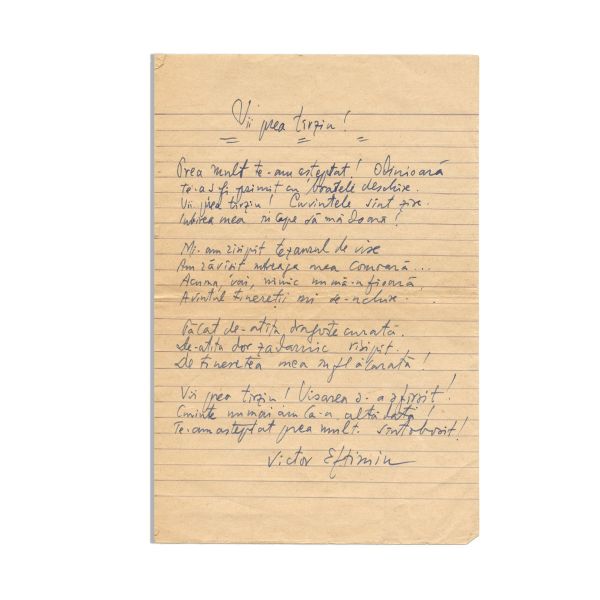 Vii prea tîrziu!
Prea mult te-am așteptat! Odinioară
te-aș fi primit cu brațele deschise.
Vii prea tîrziu! Cuvintele sînt zise.
Iubirea mea începe să mă doară!
Mi-am risipit tezaurul de vise
Am zăvîrlit întreaga mea comoară...
Acuma, vai, nimic nu mă-nfioară,
Avîntul tinereții mi se-nchise.
Păcat de-atîta dragoste curată.
De-atîta dor zadarnic risipit,
De tinerețea mea înflăcărată!
Vii prea tîrziu! Visarea s-a sfîrșit!
Cuminte nu mai am ca-n altă dată!
Te-am așteptat prea mult. Sînt obosit!
Victor Eftimiu